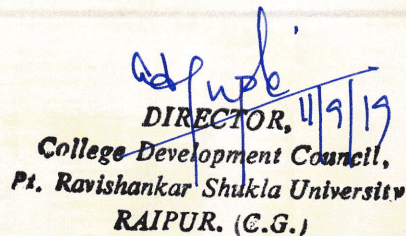 DIRECTOR, 11/9/19
College Development Council,
Pt. Ravishankar Shukla University
RAIPUR. (C.G.)